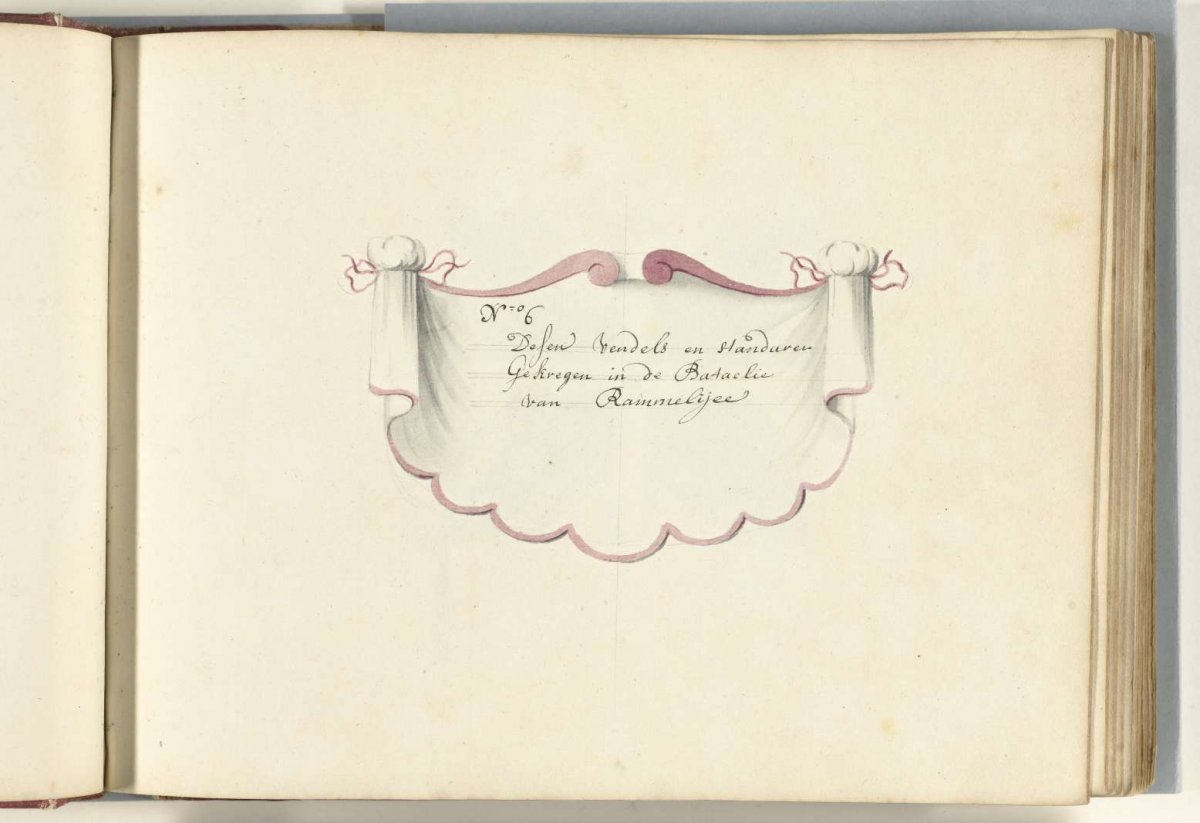 N=o 6
Desen Vendels en standaren
Gekregen in de Bataelie
van Rammelijee